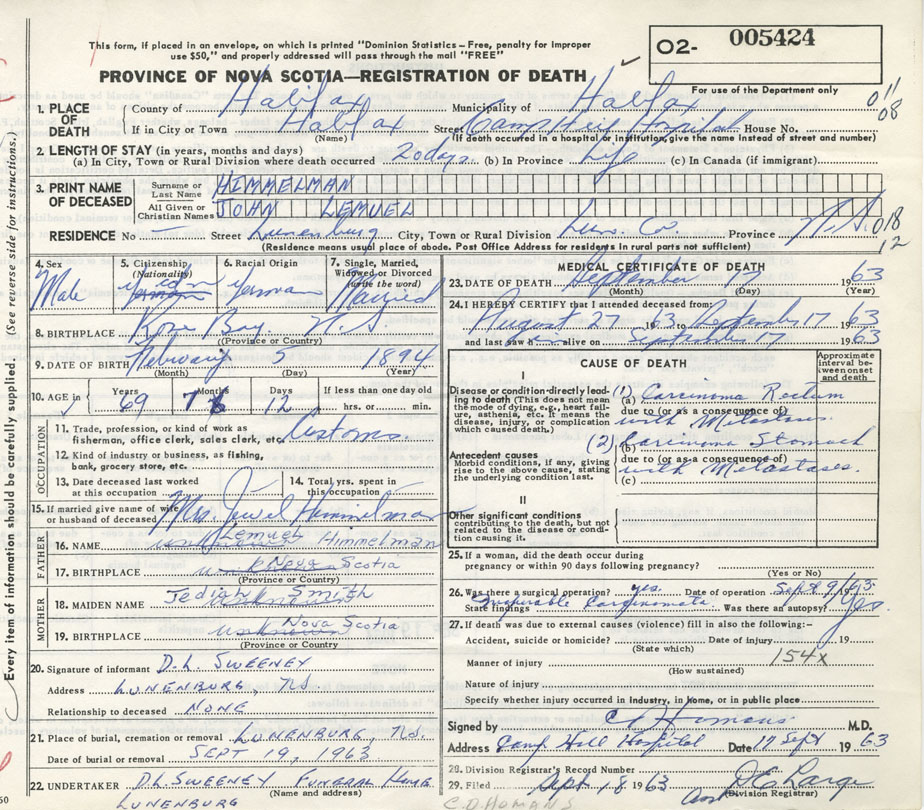 This form, if placed in an envelope, on which is printed "Dominion Statistics – Free, penalty for improper
use $50," and properly addressed will pass through the mail "FREE"
PROVINCE OF NOVA SCOTIA—REGISTRATION OF DEATH
O2- 005424
For use of the Department only
1. PLACE OF DEATH County of Halifax Municipality of Halifax 011
If in City or Town Halifax Street Camp Hill Hospital House No. 08
(Name) (If death occurred in a hospital or institution, give the name instead of street and number)
2. LENGTH OF STAY (in years, months and days)
(a) In City, Town or Rural Division where death occurred 20 days (b) In Province Life (c) In Canada (if immigrant)
3. PRINT NAME OF DECEASED Surname or Last Name HIMMELMAN
All Given or Christian Names JOHN LEMUEL
RESIDENCE No — Street Lunenburg City, Town or Rural Division Lun. Co. Province N.S. 018
(Residence means usual place of abode. Post Office Address for residents in rural parts not sufficient) 12
4. Sex Male
5. Citizenship (Nationality)
6. Racial Origin German
7. Single, Married, Widowed or Divorced (write the word) Married
8. BIRTHPLACE Rose Bay N.S.
(Province or Country)
9. DATE OF BIRTH February 5 1894
(Month) (Day) (Year)
10. AGE in Years 69 Months 7 Days 12 If less than one day old hrs. or min.
OCCUPATION
11. Trade, profession, or kind of work as fisherman, office clerk, sales clerk, etc. Customs
12. Kind of industry or business, as fishing, bank, grocery store, etc.
13. Date deceased last worked at this occupation
14. Total yrs. spent in this occupation
15. If married give name of wife or husband of deceased Mrs. Jewel Himmelman
FATHER
16. NAME unknown Lemuel Himmelman
17. BIRTHPLACE Nova Scotia
(Province or Country)
MOTHER
18. MAIDEN NAME Jediah Smith unknown
19. BIRTHPLACE unknown Nova Scotia
(Province or Country)
20. Signature of informant D.L. SWEENEY
Address LUNENBURG, NS
Relationship to deceased NONE
21. Place of burial, cremation or removal LUNENBURG, N.S.
Date of burial or removal SEPT 19, 1963
22. UNDERTAKER D.L. SWEENEY FUNERAL HOME
(Name and address)
LUNENBURG
MEDICAL CERTIFICATE OF DEATH
23. DATE OF DEATH September 17 1963
(Month) (Day) (Year)
24. I HEREBY CERTIFY that I attended deceased from:
August 27 1963 to September 17 1963
and last saw him alive on September 17 1963
CAUSE OF DEATH
Approximate interval between onset and death
I
Disease or condition directly leading to death (This does not mean the mode of dying, e.g., heart failure, asthenia, etc. It means the disease, injury, or complication which caused death.)
(1) (a) Carcinoma Rectum
due to (or as a consequence of)
with Metastasis.
Antecedent causes
Morbid conditions, if any, giving rise to the above cause, stating the underlying condition last.
(2) (b) Carcinoma Stomach
due to (or as a consequence of)
(c) with Metastases.
II
Other significant conditions
contributing to the death, but not related to the disease or condition causing it.
25. If a woman, did the death occur during pregnancy or within 90 days following pregnancy?
(Yes or No)
26. Was there a surgical operation? yes. Date of operation Sept 9/63
State findings Inoperable Carcinomata. Was there an autopsy? Yes.
27. If death was due to external causes (violence) fill in also the following:-
Accident, suicide or homicide? Date of injury 19
(State which)
Manner of injury 154x
(How sustained)
Nature of injury
Specify whether injury occurred in Industry, in Home, or in public place
Signed by C D Homans M.D.
Address Camp Hill Hospital Date 17 Sept 1963
28. Division Registrar's Record Number
29. Filed Sept 18 1963
(Division Registrar)
C.D. HOMANS
Every item of information should be carefully supplied. (See reverse side for instructions.)